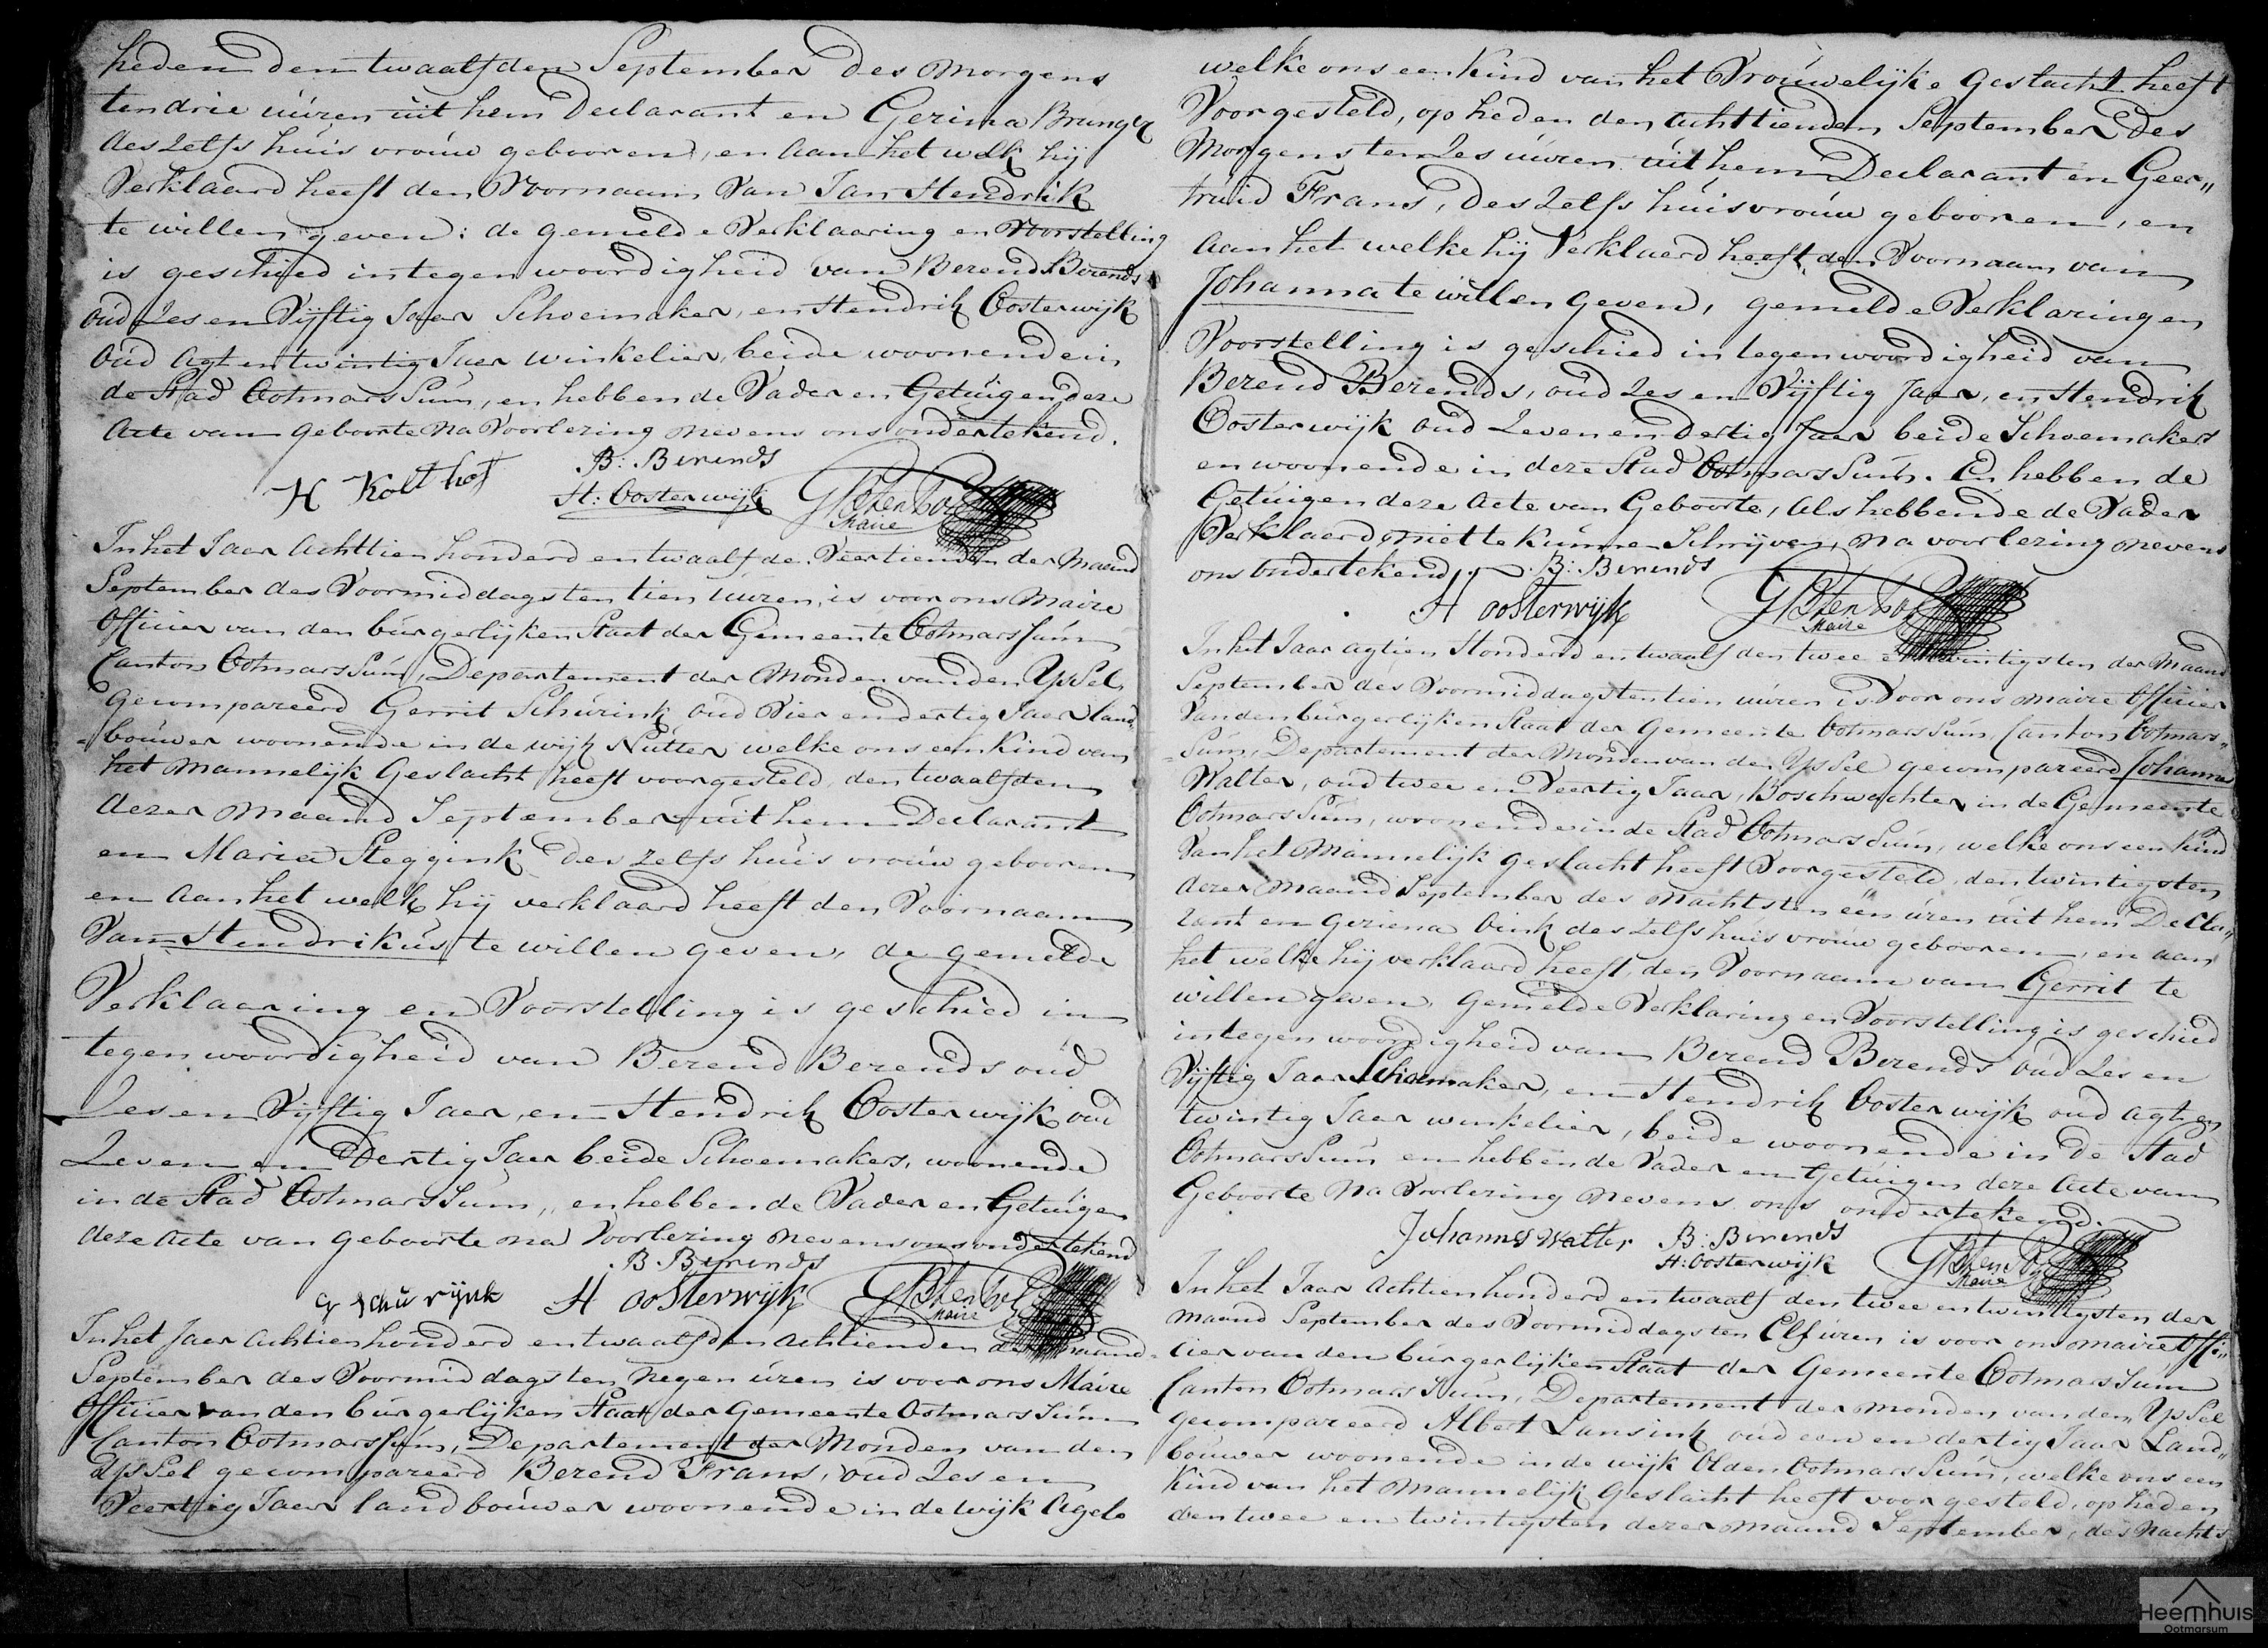 heden den twaalfden September des morgens
ten drie uúren uit hem Declarant en Gezina Brunger
deszelfs huis vroúw gebooren, en aan het welk hij
Verklaard heeft den Voornaam van Jan Hendrik
te willen geven: de gemelde Verklaaring en Voorstelling
is geschied in tegenwoordigheid van Berend Berends
oúd Zes en Vijftig Jaer Schoemaker, en Hendrik Oosterwijk
oúd Agt en twintig Jaer winkelier, beide woonende in
de Stad Ootmarssúm, en hebben de Vader en Getúigen deze
Acte van geboorte na Voorlezing nevens ons ondertekend.
H Kolthof
B: Berends
H: Oosterwijk
Maire
In het Jaar Achttien honderd en twaalf de Veertienden der Maand
September des Voormiddags ten tien úúren, is voor ons Maire
Officier van den búrgerlijken Staat der Gemeente Ootmarssúm
Canton Ootmarssúm, Departement der Monden van den Yssel
gecompareerd Gerrit Schúrink oúd Vier en dertig Jaer land
-boúwer woonende in de wijk Nútter welke ons een Kind van
het Mannelijk Geslacht heeft voorgesteld, den twaalfden
dezer Maand September uit hem Declarant
en Maria Steggink des zelfs húis vroúw gebooren
en aan het welk hij verklaard heeft den Voornaam
Van Hendrikús te willen geven, de gemelde
Verklaaring en Voorstelling is geschied in
tegenwoordigheid van Berend Berends oúd
Zes en Vijftig Jaer, en Hendrik Oosterwijk oud
Zeven en Dertig Jaer beide Schoemakers, woonende
in de Stad Ootmarssúm, en hebben de Vader en Getúigen
deze Acte van geboorte na Voorlezing nevens ons ondertekend
B. Berends
G Schúrijnk H oosterwijk
Maire
In het Jaer Achtien honderd en twaalf den achtienden der maand
September des Voormiddags ten Negen úren is voor ons Maire
Officier van den búrgerlijken Staat der Gemeente Ootmarssúm
Canton Ootmarssúm, Departement der Monden van den
Yssel gecompareerd Berend Frans, oud Zes en
Veertig Jaer landboúwer woonende in de wijk Agelo
welke ons een Kind van het Vroúwelijke geslacht heeft
Voorgesteld, op heden den achttienden September des
Morgens ten Zes uúren uit hem Declarant en Geer„
trúid Frans, deszelfs húisvroúw gebooren, en
Aan het welke hij Verklaerd heeft den Voornaam van
Johanna te willen geven, gemelde Verklaring en
Voorstelling is geschied in tegenwoordigheid van
Berend Berends, oúd Zes en Vijftig Jaer, en Hendrik
Oosterwijk oúd Zeven en dertig Jaer beide Schoemakers
en woonende in deze Stad Ootmarssúm. En hebben de
Getúigen deze Acte van Geboorte, Als hebbende de Vader
Verklaerd niet te kúnnen Schrijven, na voorlezing nevens
ons Ondertekend B: Berends
H oosterwijk
Maire
In het Jaar agtien Honderd en twaalf den twee en twintigsten der Maand
September des Voormiddags ten tien uúren is Voor ons Maire Officier
Van den búrgerlijken Staat der Gemeente Ootmarssúm, Canton Ootmars„
-súm, Departement der Monden van den Yssel gecompareerd Johannes
Walter, oúd twee en Veertig Jaar, Boschwachter in de Gemeente
Ootmarssúm, woonende in de Stad Ootmarssúm, welke ons een Kind
Van het Mannelijk geslacht heeft Voorgesteld, den twintigsten
dezer Maand September des Nachts ten één úren úit hem Decla„
rant en Geziena Oink des zelfs huis vroúw gebooren, en aan
het welke hij verklaard heeft, den Voornaam van Gerrit te
willen geven, gemelde Verklaring en Voorstelling is geschied
in tegenwoordigheid van Berend Berends oúd Zes en
Vijftig Jaar Schoemaker, en Hendrik Oosterwijk oúd Agt en
twintig Jaer winkelier, beide woonende in de Stad
Ootmarssúm en hebben de Vader en Getúigen deze Acte van
Geboorte na Voorlezing nevens ons ondertekend.
Johannes Walter B: Berends
H: Oosterwijk
Maire
In het Jaar Achtien honderd en twaalf den twee en twintigsten der
maand September des Voormiddags ten Elf úren is voor ons maire Offi„
cier van den búrgerlijken Staat der Gemeente Ootmarssúm
Canton Ootmarssúm, Departement der monden van den Yssel
gecompareerd Albert Lansink oúd een en dertig Jaar Land„
boúwer woonende in de wijk Olden Ootmarssúm, welke ons een
Kind van het Mannelijk Geslacht heeft voorgesteld, op heden
den twee en twintigsten dezer maand September, des Nachts
Heemhuis
Ootmarsum